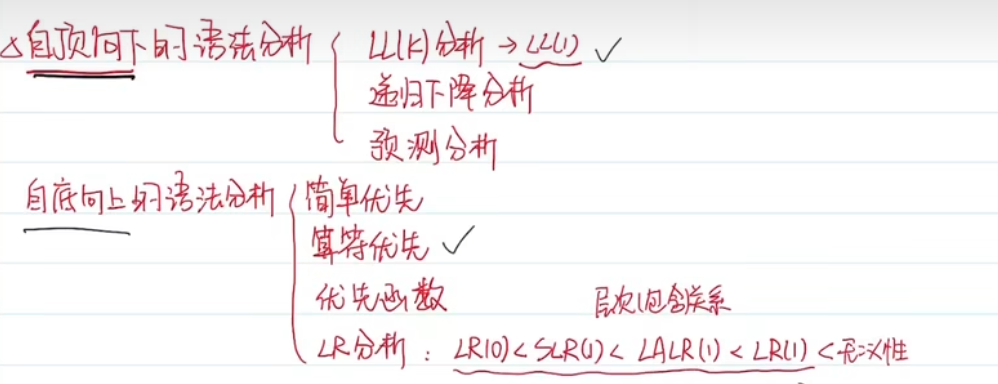 △自顶向下的语法分析 { LL(k)分析 → LL(1) ✓
递归下降分析
预测分析
自底向上的语法分析 { 简单优先
算符优先 ✓
优先函数
层次包含关系
LR分析：LR(0) < SLR(1) < LALR(1) < LR(1) < 无二义性